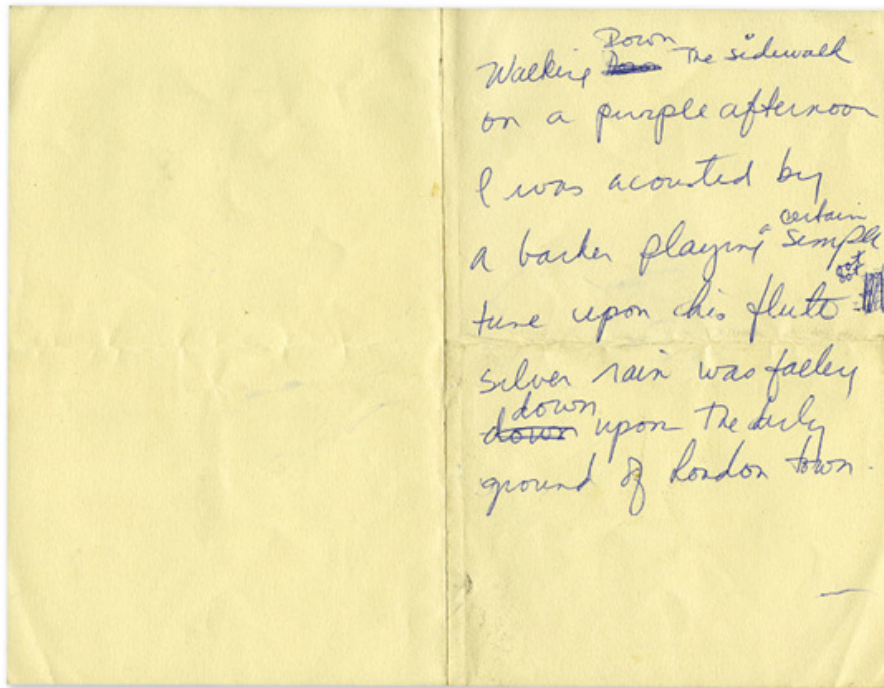 Walking Down The sidewalk
on a purple afternoon
I was acousted by
a barker playing a certain simple
tune upon his flute - got
silver rain was falling
down upon The dirty
ground of London town.